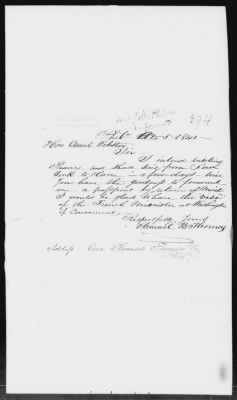 394
5 1841
Hon Daniel Webster
Sir
I intend visiting
France and shall sail from New
York to Havre in a few days will
you have the goodness to forward
me a passport by return of mail
I would be glad to have the visa
of the French Minister at Washington
if convenient
Respectfully Yours
Samuel B Thomas
Address Care